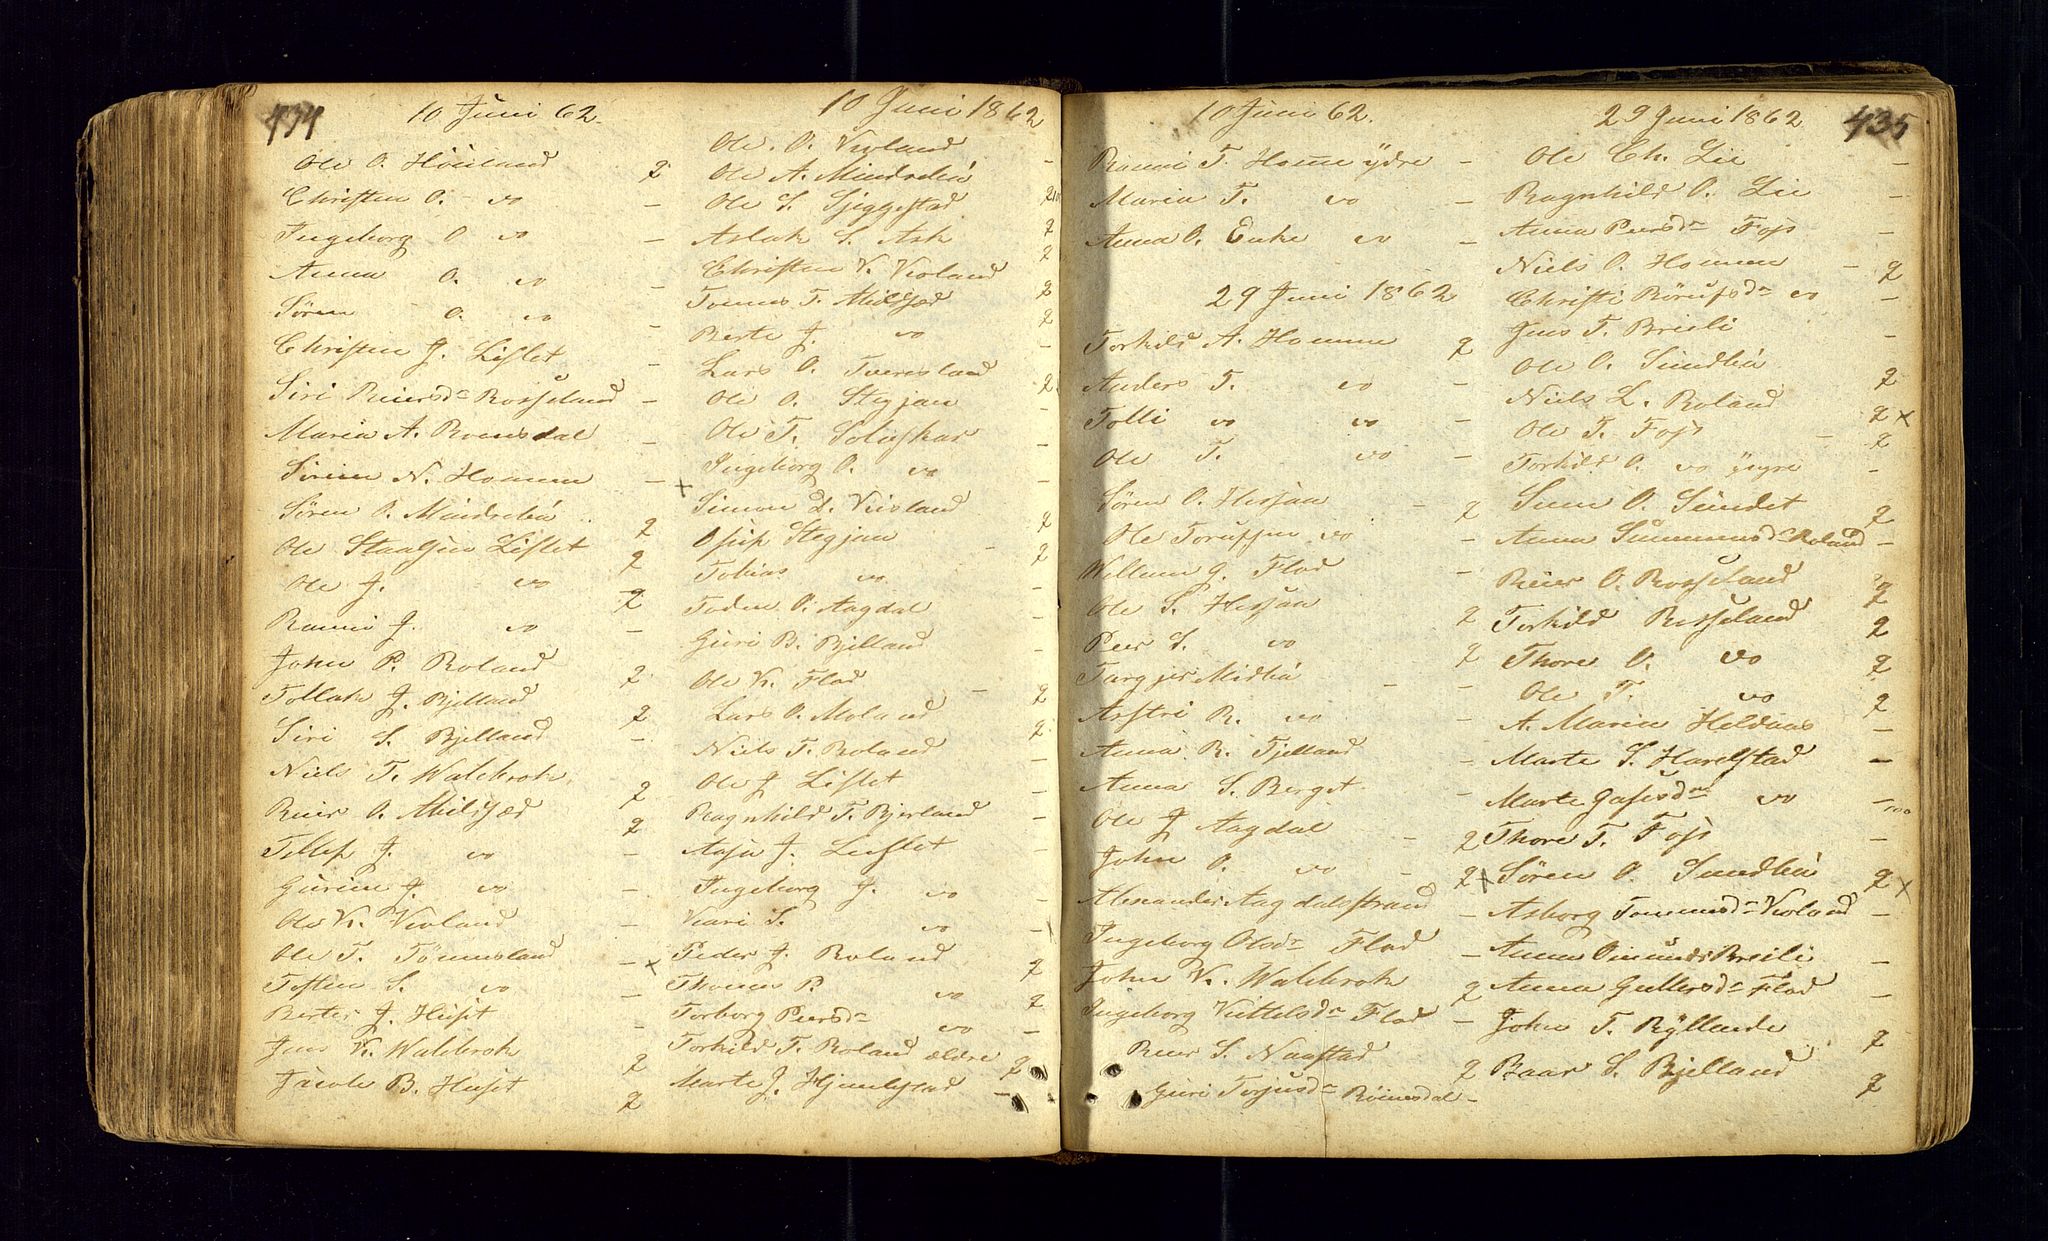 434
10 Juni 62.
Ole O. Höiland 2
Christen O. do -
Ingeborg O do -
Anna O. do -
Sören O. do -
Christen J. Lislet -
Siri Reiersd. Rosseland -
Maria A. Romsdal -
Sörine N. Homme -
Sören O. Mindrebö 2
Ole Staalsen Lislet 2
Ole J. do 2
Ranni J. do -
John P. Roland 2
Tollak J. Bjelland 2
Siri S. Bjelland -
Niels T. Waldrok 2
Reier O. Mileæd 2
Tellef J. do -
Gurine J. do -
Ole K. Vivland -
Ole T. Tönnesland -
Tosten S. do -
Berte J. Huset -
Jens K. Waldrok 2
Jacob B. Huset 2
10 Juni 1862
Ole O. Vivland -
Ole A. Mindrebö 2
Ole S. Sjiggestad 2
Aslak S. Ask 2
Christen V. Vivland 2
Tomes T. 2
Berte J. do -
Lars O. Tveresland 2
Ole O. Stegjan -
Ole T. Soleskar -
Ingeborg O. do -
x Simon L. Veisland 2
Osuf Stegjan - 2
Tobias do -
Toden O. Aagdal -
Guri B. Bjelland -
Ole K. Flad - 2
Lars O. Moland 2
Niels T. Roland -
Ole J Lislet -
Ragnhild T. Bjerland -
Aasa J. Lislet -
Ingeborg J. do -
Kari S. do -
x Peder J. Roland 2
Thomm P. do 2
Torborg Peersd. do -
Torkild T. Roland ældre 2
Marte J. Hjemlestad -
10 Juni 62.
Ranni T. Homme ydre -
Maria T. do -
Anna O. Eike do -
29 Juni 1862
Torkild A. Homme 2
Anders T. do -
Tolli do do -
Ole T. do -
Sören O. Hessaa - 2
Ole Torussen do -
Willum J. Flad -
Ole S. Hessaa 2
Peer S. do 2
Targjer Midbö - -
Asstri R. do -
Anna R. Fjelland -
Anna S. Berget -
Ole J Aagdal - 2
John O. do - 2
Alexander Aagdalsstrand -
Ingeborg Olsdr Flad -
John K. Waldrok 2
Ingeborg Vettelsdr Flad -
Reier S. Naastad 2
Guri Torjusdr Röinesdal -
29 Juni 1862
435
Ole Ch. Lie -
Ragnhild O. Lie -
Anna Peersdr Foss -
Niels O. Homme - 2
Christi Rörufsdr do -
Jens T. Breili -
Ole O. Sundbö 2
Niels L. Roland 2 x
Ole T. Foss - 2
Torkild O. do yngre -
Sune O. Sundet 2
Anna Simmunsdr Roland -
Reier O. Rosseland 2
Torkild Rosseland 2
Thore O. do 2
Ole T. do 2
A. Maria Heldaas -
Marte S. Harelstad -
Marte do -
Thore T. Foss -
x Sören O. Sundbö 2 x
Asborg Tommesdr Vivland -
Anna Omundsdr Breili -
Anna Gullersdr Flad -
John T. Ryllande 2
Baar S. Bjelland 2